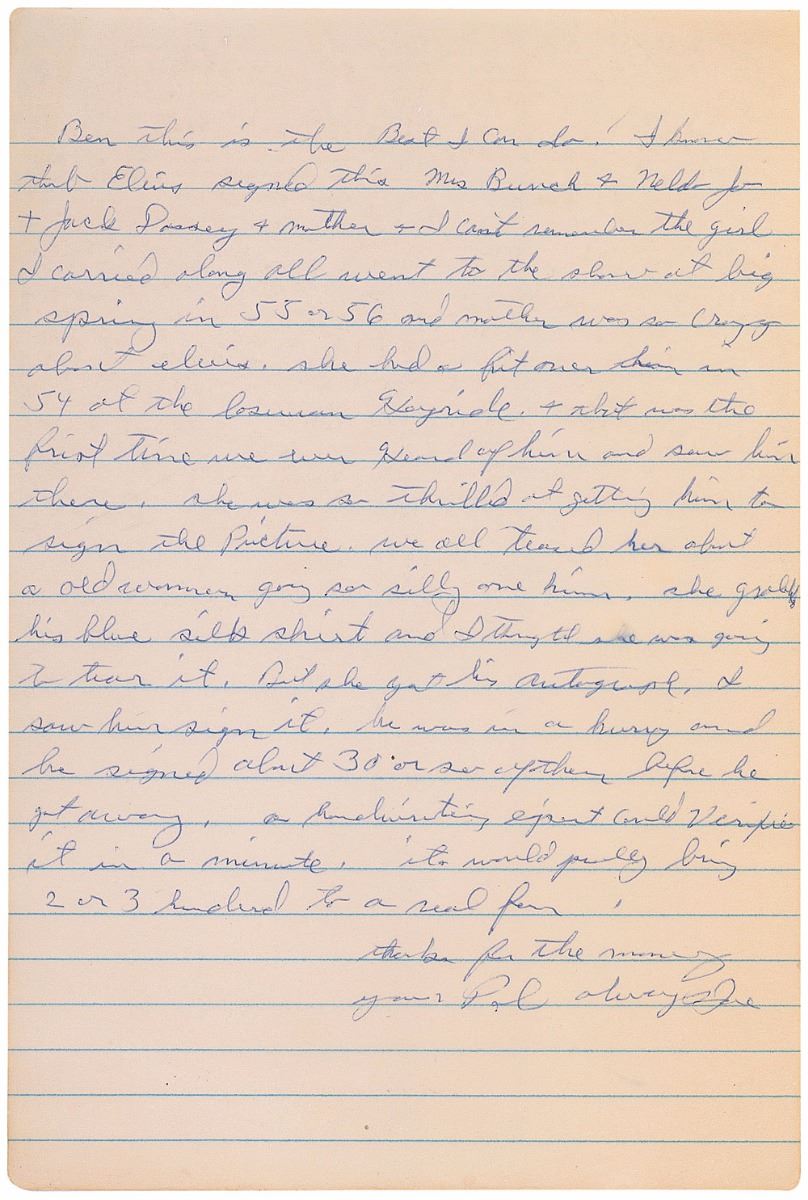 Ben this is the Best I Can do. I know
that Elvis signed this Mrs Bunch & Nelda Jo
+ Jack Possey & mother & I can't remember the girl
I carried along all went to the show at big
spring in 55 or 56 and mother was so crazy
about elvis. she had a fit over him in
54 at the Hayride. & that was the
first time we ever Heard of him and saw him
there. she was so thrilled at getting him to
sign the Picture. we all teased her about
a old women going so silly over him. she grabed
his blue silk shirt and I thought she was going
to tear it. But she got his autograph. I
saw him sign it. he was in a hurry and
he signed about 30 or so of them before he
got away. a handwriting expert could Verifie
it in a minute. it would bring
2 or 3 hunderd to a real fan.
thanks for the money
your Pal always Joe